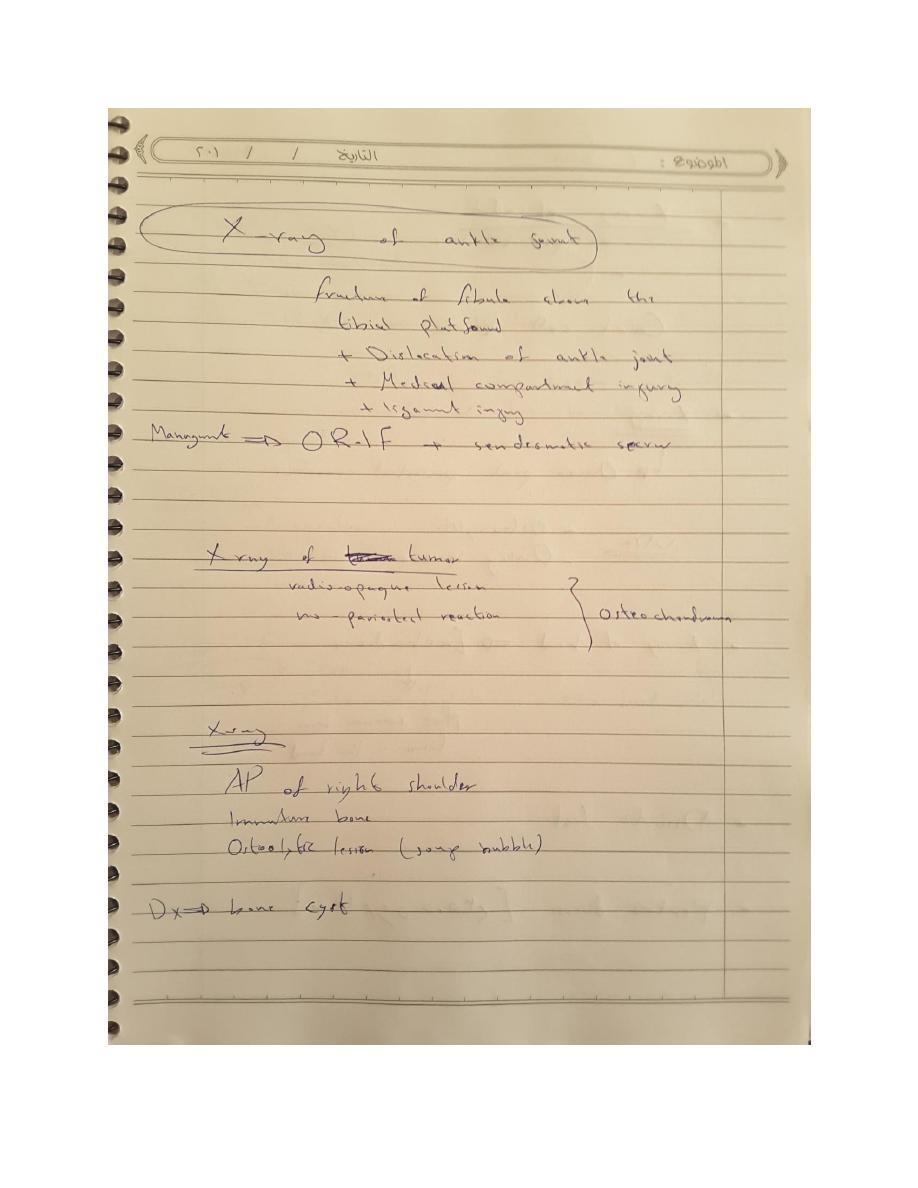 الموضوع : التاريخ / / ٢٠١
X-ray of ankle joint
fracture of fibula above the
tibial platfound
+ Dislocation of ankle joint
+ Medcal compartment injury
+ ligamnt injuy
Managmnt ⇒ ORIF + sendesmatic
X ray of tumor
radio-opaque lesion
no - pariosteal reaction } Osteochondroma
X-ray
AP of right shoulder
Immature bone
Osteolytic lesion (soap bubble)
Dx ⇒ bone cyst